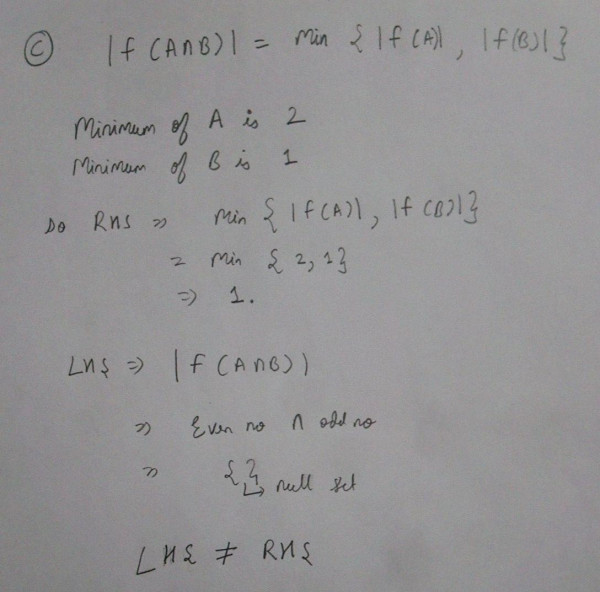 Ⓒ |f(A∩B)| = Min {|f(A)|, |f(B)|}
Minimum of A is 2
Minimum of B is 1
So RHS ⇒ Min {|f(A)|, |f(B)|}
= Min {2,1}
⇒ 1.
LHS ⇒ |f(A∩B)|
⇒ Even no ∩ odd no
⇒ {} ↳ null set
LHS ≠ RHS